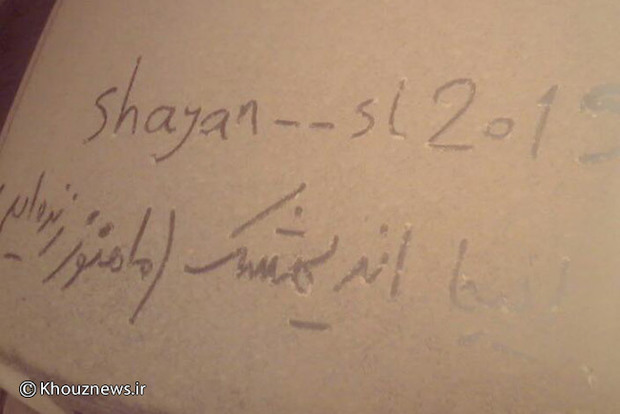 shayan--sl 2015
اینجا اندیمشک (ما هنوز زنده ایم)
© Khouznews.ir